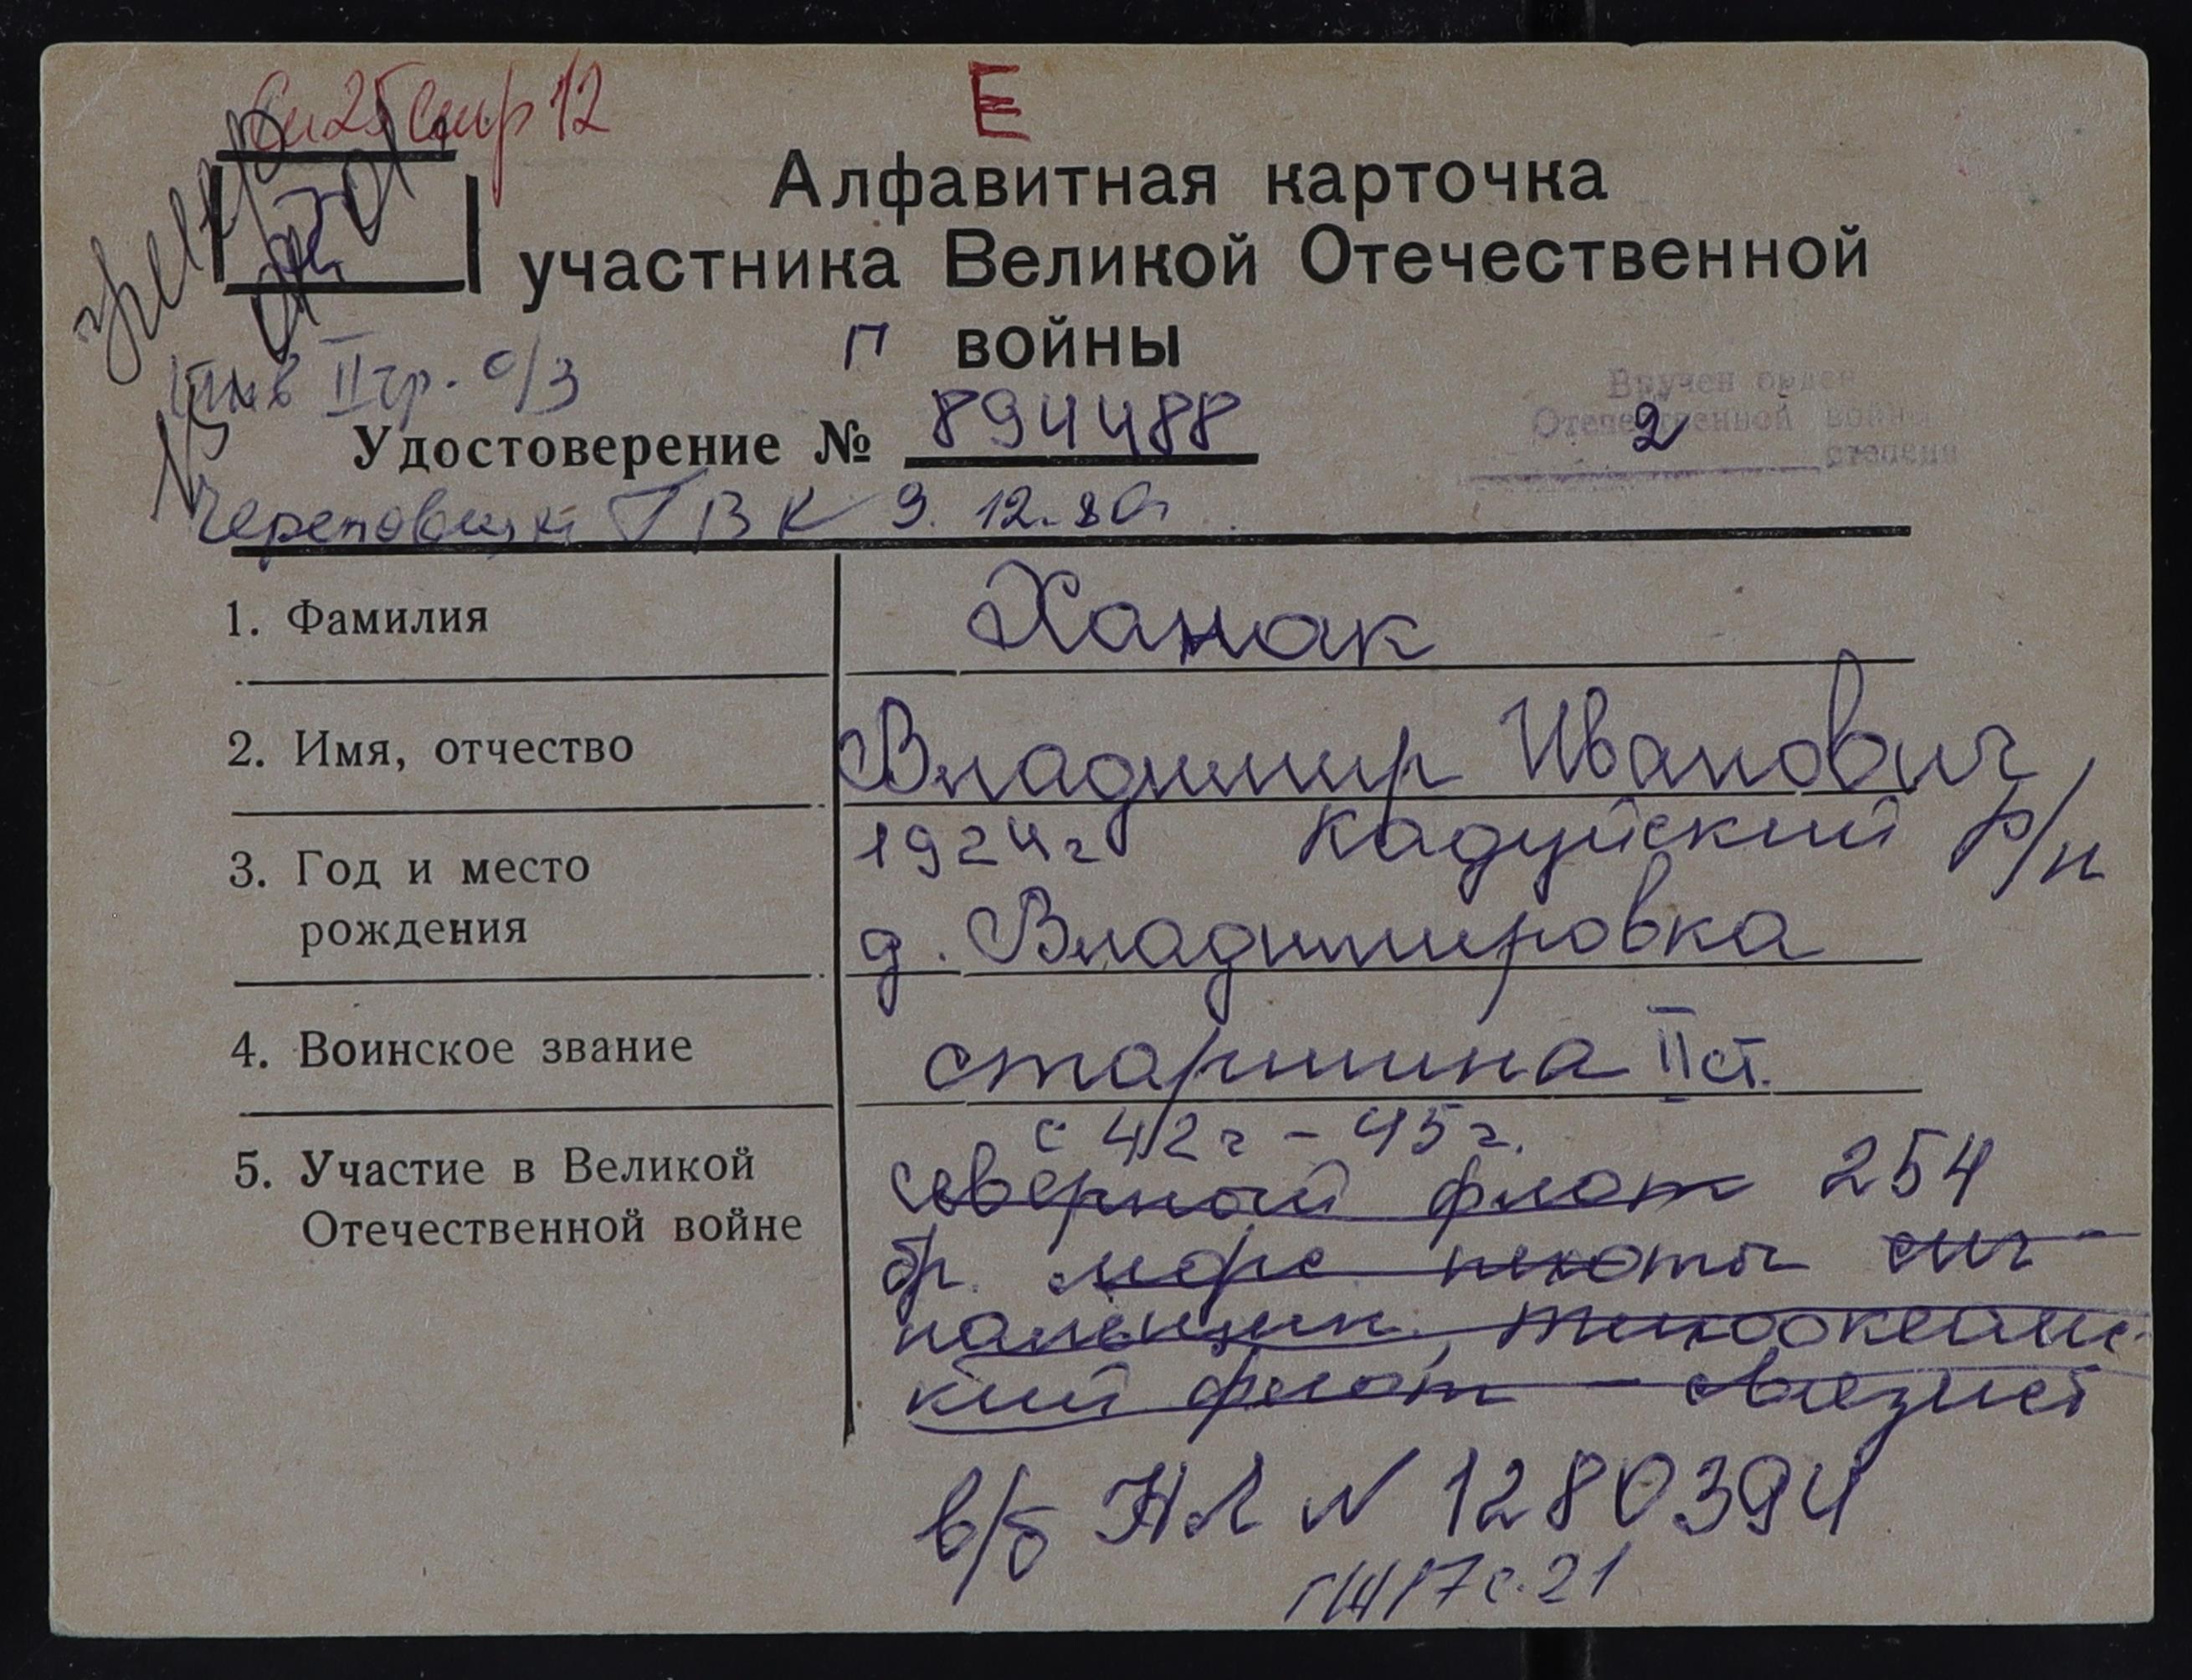 25 12
Е
Алфавитная карточка
участника Великой Отечественной
П войны
Инв II гр. о/з
Вручен орден
Отечественной войны
2 степени
Удостоверение № 894488
ГВК 9. 12. 80г
1. Фамилия Ханак
2. Имя, отчество Владимир Иванович
3. Год и место 1924г Кадуйский р/н
рождения д. Владимировка
4. Воинское звание старшина II ст.
с 42г - 45г.
5. Участие в Великой северный флот 254
Отечественной войне бр. морс пехоты сиг-
нальщик, тихоокеанс-
кий флот - связист
в/б НЛ N 1280394
с. 21